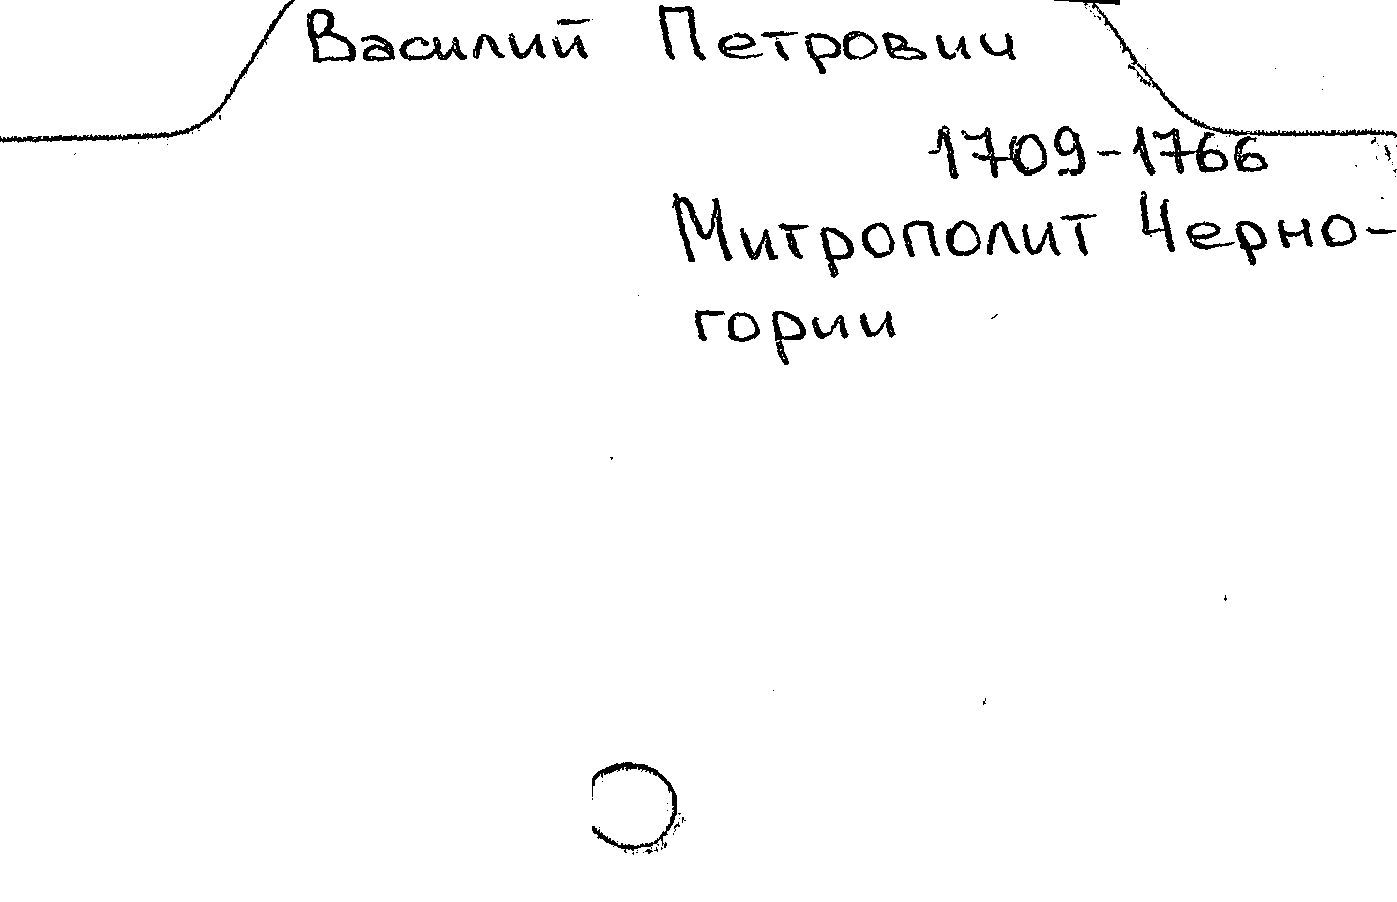 Василий Петрович
1709-1766
Митрополит Черно-
гории